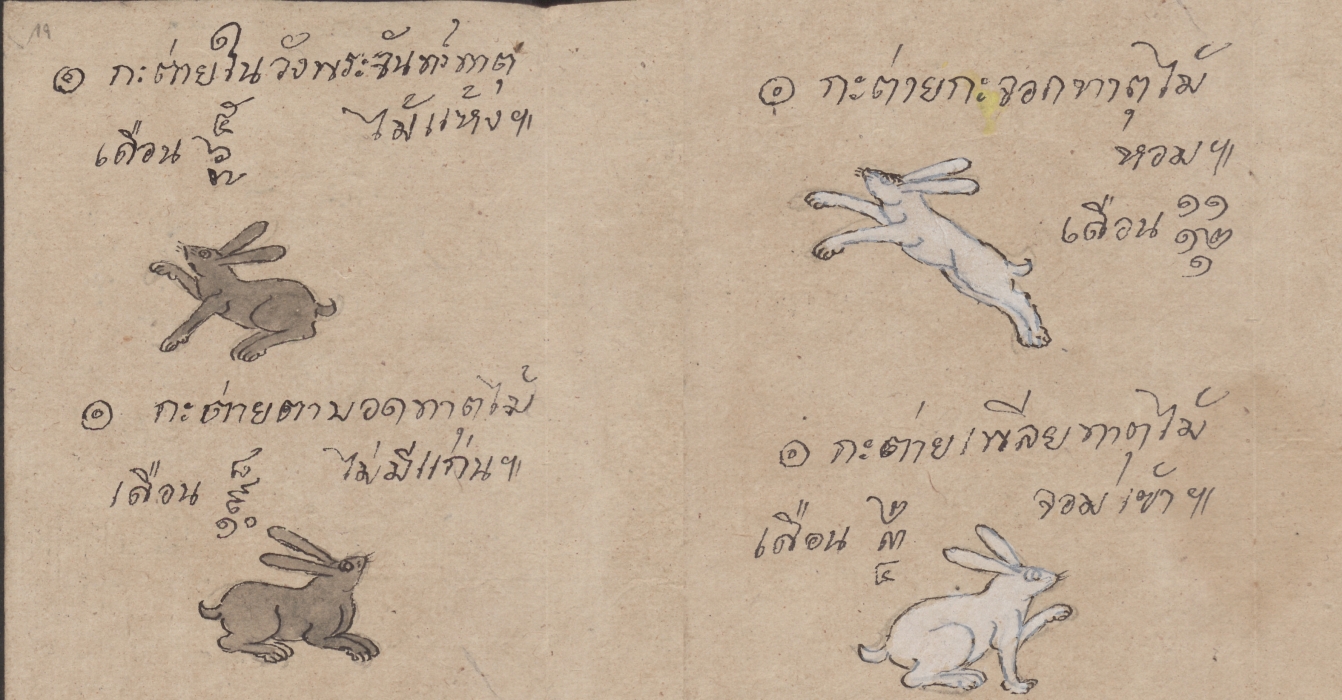 ๏ กะต่ายในวังพระจันท์ทาตุ
ไม้แห้ง๚
เดือน ๕
๖
๗
๏ กะต่ายตาบอดทาตุไม้
ไม่มีแก่น๚
เดือน ๘
๙
๑๐
๏ กะต่ายกะจอกทาตุไม้
หอม๚
เดือน ๑๑
๑๒
๑
๏ กะต่ายเพลียทาตุไม้
จอมเขา๚
เดือน ๒
๓
๔